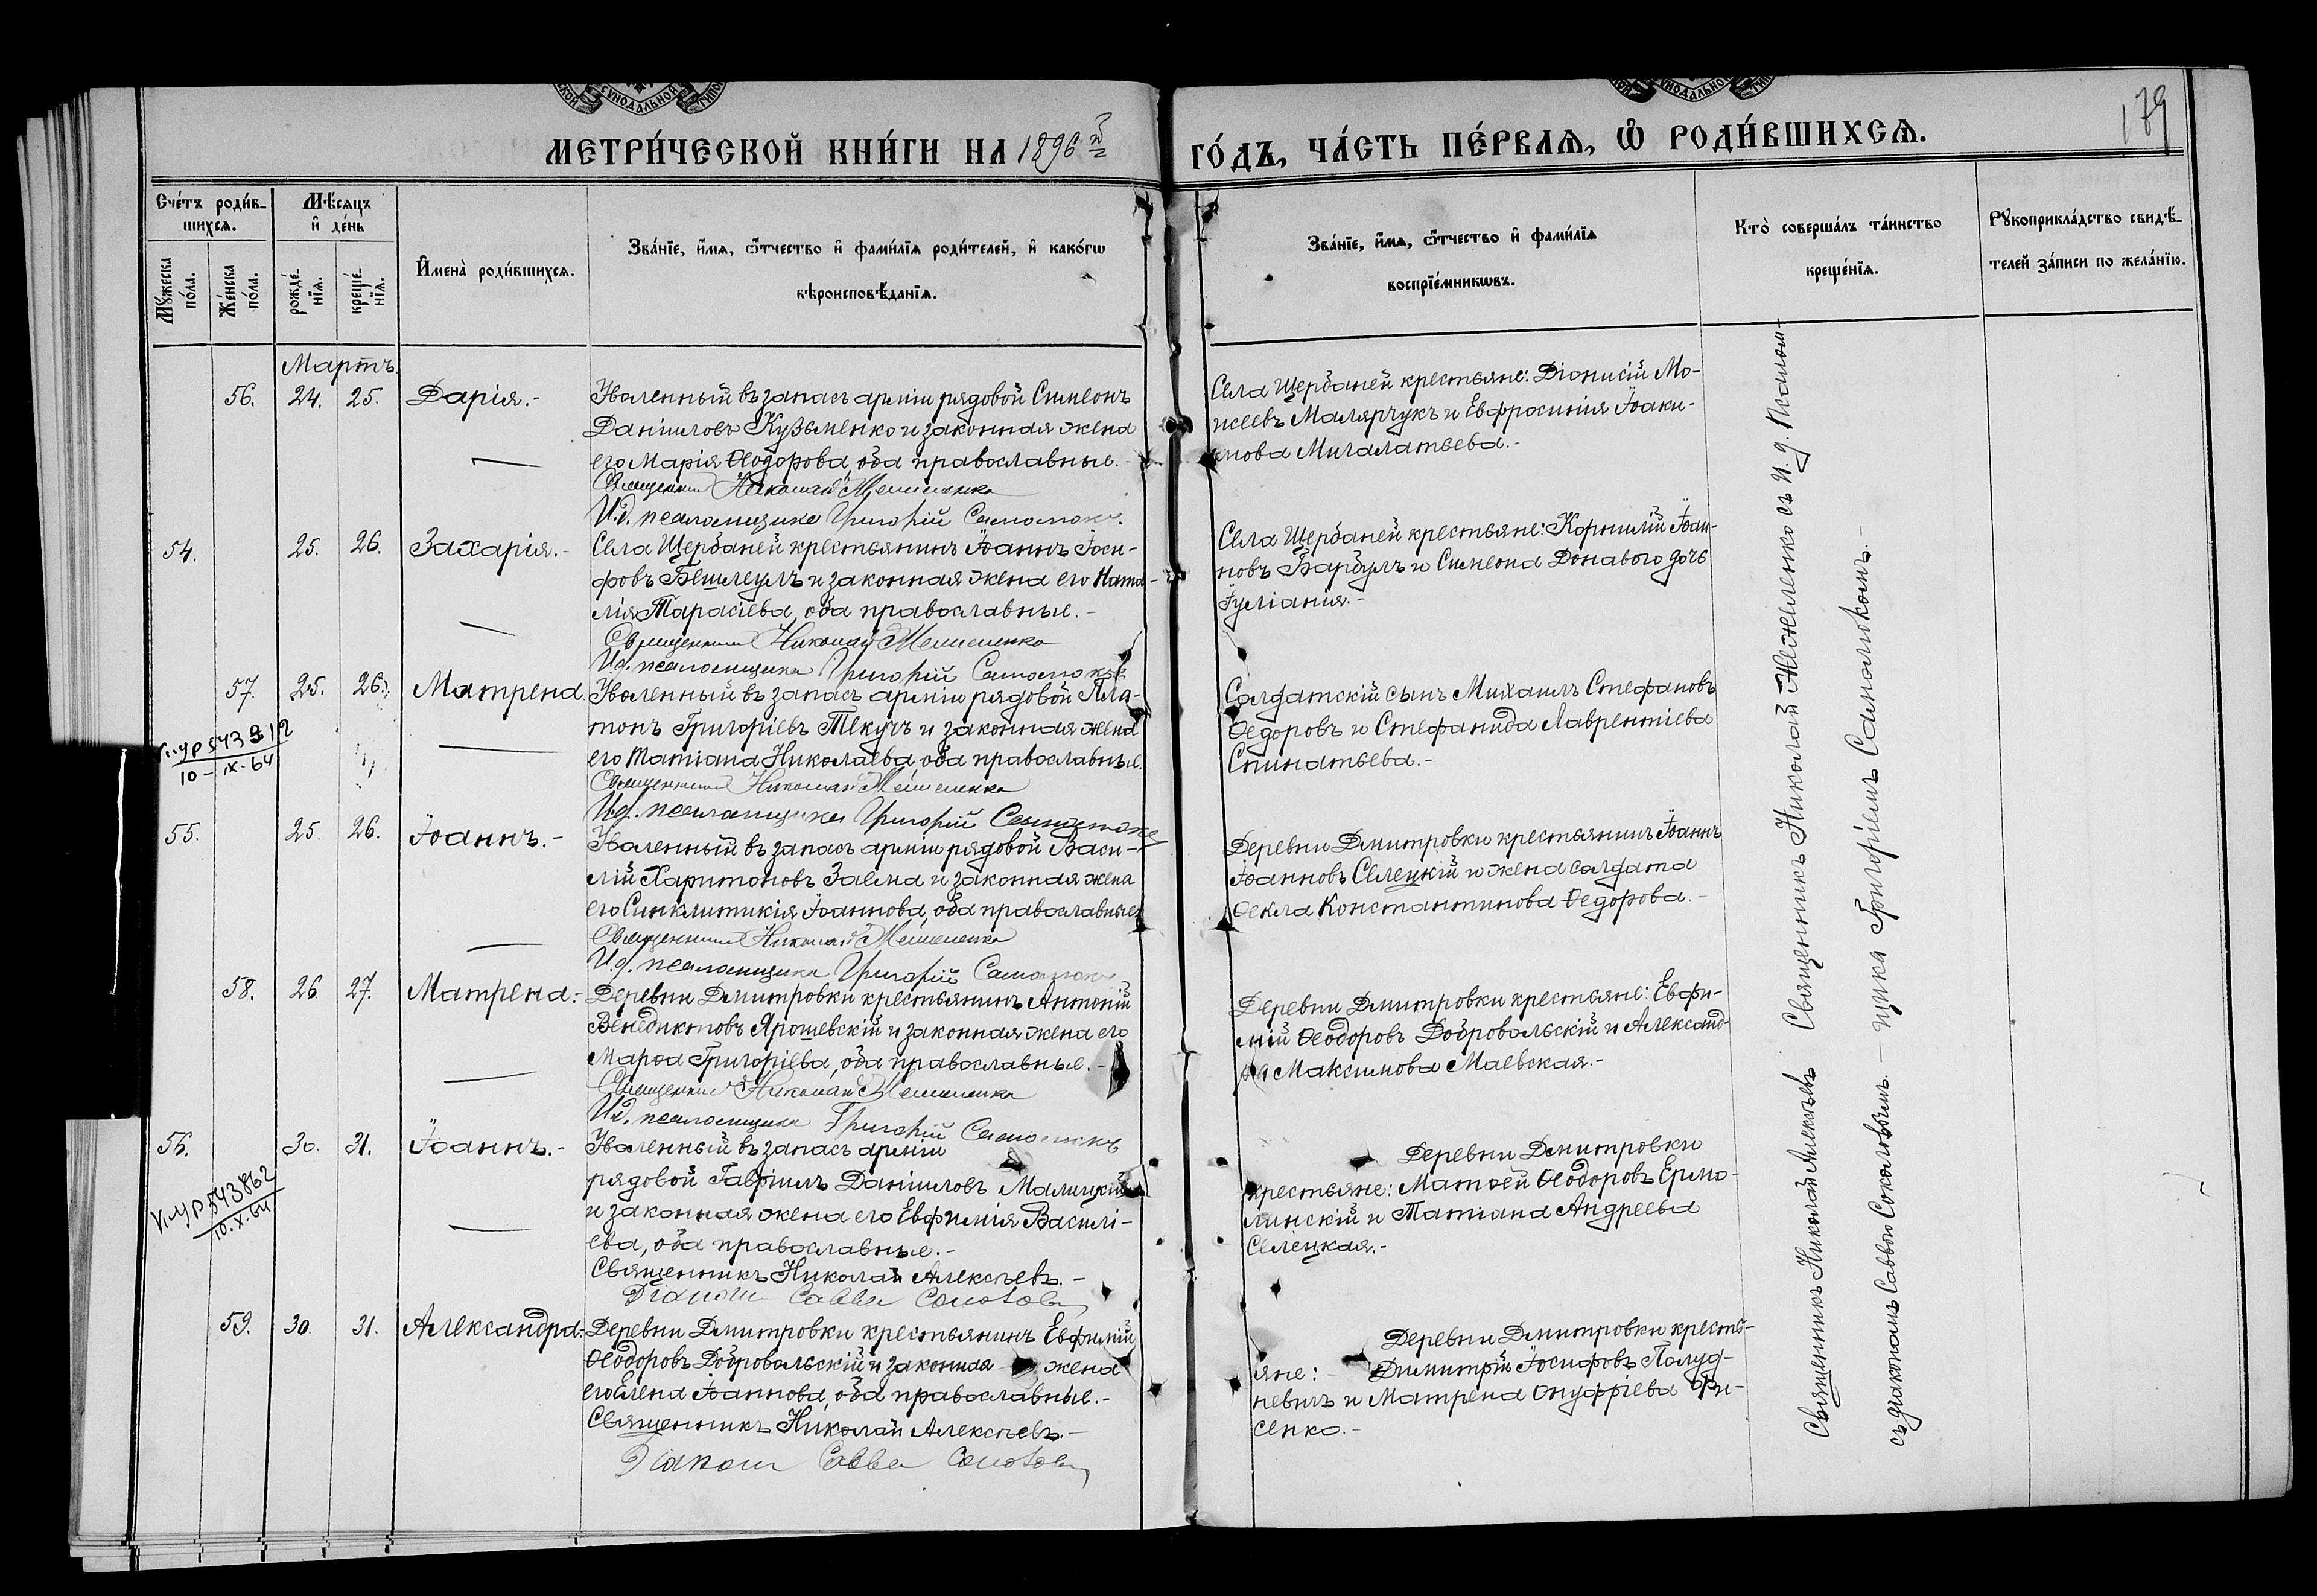 МЕТРИ́ЧЕСКОЙ КНИ́ГИ НА 1896 й
ГО́ДЪ, ЧА́СТЬ ПЕ́РВАѦ, Ѡ҆ РОДИ́ВШИХСѦ.
179
Сче́тъ роди́в-
шихсѧ.
Мѣ́сѧцъ
и҆ де́нь
Мꙋ́жеска
по́ла.
Же́нска
по́ла.
рожде́-
нїѧ.
креще́-
нїѧ.
И҆мена̀ роди́вшихсѧ.
Зва́нїе, и҆́мѧ, ѻ҆́тчество и҆ фами́лїѧ роди́телей, и҆ како́гѡ
вѣроисповѣ́данїѧ.
Зва́нїе, и҆́мѧ, ѻ҆́тчество и҆ фами́лїѧ
воспрїе́мникѡвъ.
Кто̀ соверша́лъ та́инство
креще́нїѧ.
Рꙋкоприкла́дство свидѣ́-
телей за́писи по жела́нїю.
Мартъ.
56. 24. 25. Дарія.-
Уволенный въ запасъ арміи рядовой Симеонъ
Даніиловъ Кузьменко и законная жена
его Марія Ѳеодорова, оба православные.-
Священникъ Николай Межеленко
И.д. псаломщика Григорій Самолюкъ
Села Щербаней крестьяне: Діонисій Мо-
исеевъ Малярчукъ и Евфросинія Іоаки-
мова Мигалатьева.-
54. 25. 26. Захарія.-
Села Щербаней крестьянинъ Іоаннъ Іоси-
фовъ Бешлеулъ и законная жена его Ната-
лія Тарасіева, оба православные.-
Священникъ Николай Межеленко
И.д. псаломщика Григорій Самолюкъ
Села Щербаней крестьяне: Корнилій Іоан-
новъ Барбулъ и Симеона Донавого дочь
Іуліанія.-
57. 25. 26. Матрена
Уволенный въ запасъ арміи рядовой Пла-
тонъ Григоріевъ Текучъ и законная жена
его Татіана Николаева, оба православные.
Священникъ Николай Межеленко
И.д. псаломщика Григорій Самолюкъ
Солдатскій сынъ Михаилъ Стефановъ
Ѳедоровъ и Стефанида Лаврентіева
Спинатьева.-
10-IX-64
55. 25. 26. Іоаннъ.-
Уволенный въ запасъ арміи рядовой Васи-
лій Харитоновъ Заема и законная жена
его Синклитикія Іоаннова, оба православные
Священникъ Николай Межеленко
И.д. псаломщика Григорій Самолюкъ
Деревни Дмитровки крестьянинъ Іоаннъ
Іоанновъ Селецкій и жена солдата
Ѳекла Константинова Ѳедорова.-
58. 26. 27. Матрена.-
Деревни Дмитровки крестьянинъ Антоній
Венедиктовъ Ярошевскій и законная жена его
Марѳа Григоріева, оба православные.-
Священникъ Николай Межеленко
И.д. псаломщика Григорій Самолюкъ
Деревни Дмитровки крестьяне: Евфи-
мій Ѳеодоровъ Добровольскій и Александ-
ра Максимова Маевская.-
56. 30. 31. Іоаннъ.-
Уволенный въ запасъ арміи
рядовой Гавріилъ Даніиловъ Малицкій
и законная жена его Евфимія Василі-
ева, оба православные.-
Священникъ Николай Алексѣевъ.-
Діаконъ Савва Соколовъ
Деревни Дмитровки
крестьяне: Матѳей Ѳеодоровъ Ермо-
линскій и Татіана Андреева
Селецкая.-
543862
10.X.64
59. 30. 31. Александра.-
Деревни Дмитровки крестьянинъ Евфимій
Ѳеодоровъ Добровольскій и законная жена
его Елена Іоаннова, оба православные.-
Священникъ Николай Алексѣевъ.-
Діаконъ Савва Соколовъ
Деревни Дмитровки кресть-
яне: Димитрій Іосифовъ Полуд-
невичъ и Матрена Онуфріева Фи-
сенко.-
Священникъ Николай Межеленко съ И. д. псалом-
щика Григоріемъ Самолюкомъ.-
Священникъ Николай Алексѣевъ
съ діакономъ Саввою Соколовымъ.-